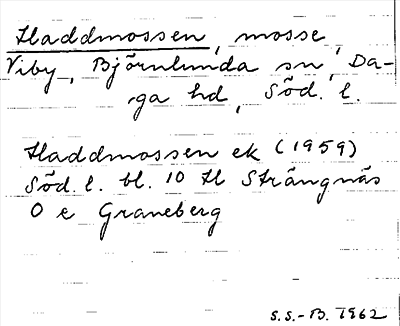 Haddmossen, mosse
Viby, Björnlunda sn, Da-
ga hd, Söd. l.
Haddmossen ek (1959)
Söd. l. bl. 10 H Strängnäs
O e Graneberg
S.S.-B. 1962